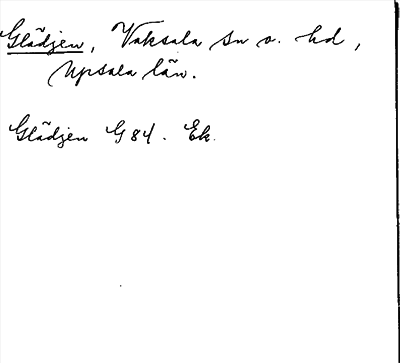 Glädjen, Vaksala sn o. hd,
Upsala län.
Glädjen G 84. Ek.